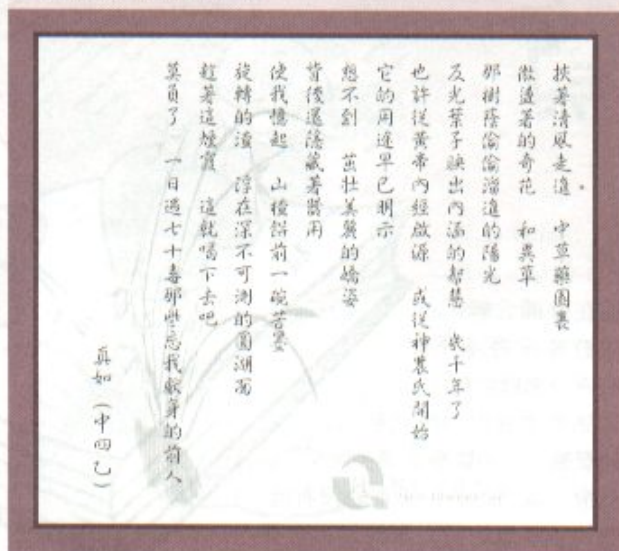 挾著清風走進　中草藥園裏
微盪著的奇花　和異草
那樹蔭偷偷溜進的陽光
反光葉子映出內涵的智慧　幾千年了
也許從黃帝內經啟源　或從神農氏開始
它的用途早已明示
想不到　茁壯美麗的嬌姿
背後還隱藏著醫用
使我憶起　山楂餅前一碗苦墨
旋轉的渣　浮在深不可測的圓湖面
趁著這煙霞　這就喝下去吧
莫負了　一日遇七十毒那些忘我獻身的前人
真如（中四乙）